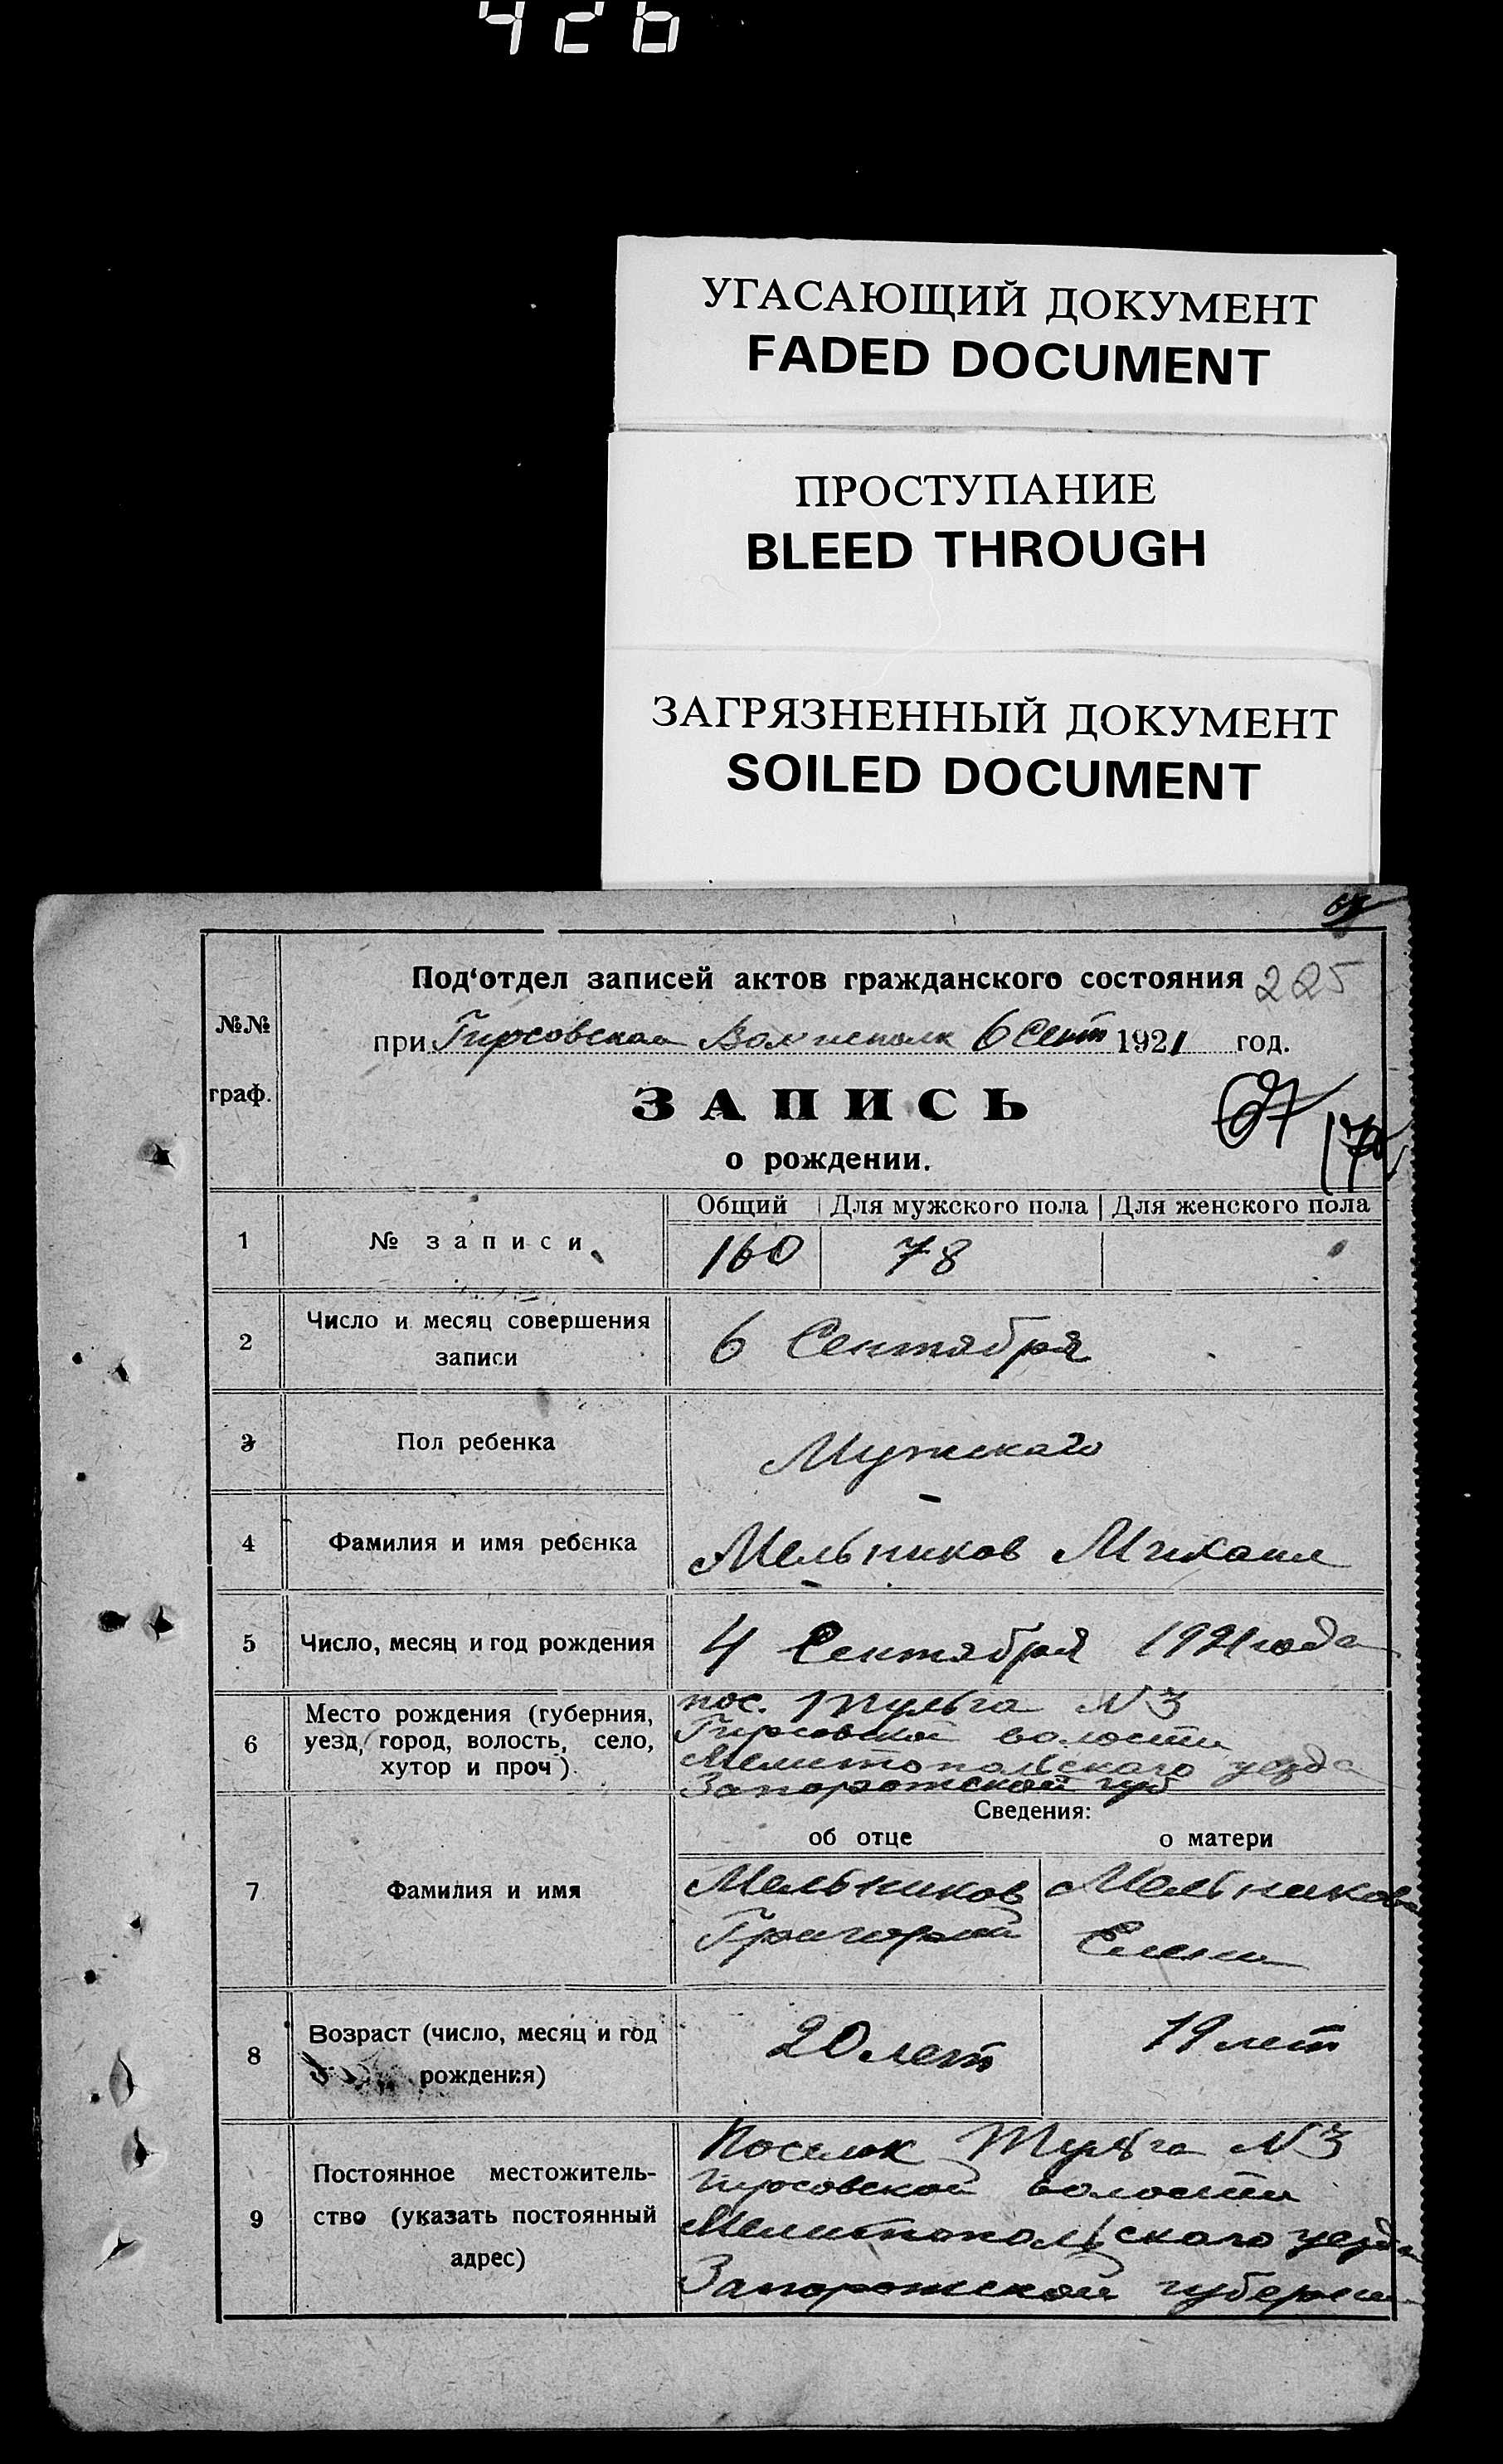 426
УГАСАЮЩИЙ ДОКУМЕНТ
FADED DOCUMENT
ПРОСТУПАНИЕ
BLEED THROUGH
ЗАГРЯЗНЕННЫЙ ДОКУМЕНТ
SOILED DOCUMENT
Под'отдел записей актов гражданского состояния 225
№№ граф.
при Гирсовском Волисполк 6 Сент 1921 год.
ЗАПИСЬ
о рождении.
Общий Для мужского пола Для женского пола
1 № записи 160 78
2 Число и месяц совершения
записи
6 Сентября
3 Пол ребенка Мужскаго
4 Фамилия и имя ребенка Мельников Михаил
5 Число, месяц и год рождения 4 Сентября 1921 года
6 Место рождения (губерния,
уезд, город, волость, село,
хутор и проч).
пос. N 3
Гирсовской волости
Мелитопольскаго уезда
Запорожской губ
Сведения:
об отце о матери
7 Фамилия и имя
Мельников Мельникова
Григорий Елена
8 Возраст (число, месяц и год
рождения)
20 лет 19 лет
9 Постоянное местожитель-
ство (указать постоянный
адрес)
Поселок N 3
Гирсовской волости
Мелитопольскаго уезда
Запорожской губернии